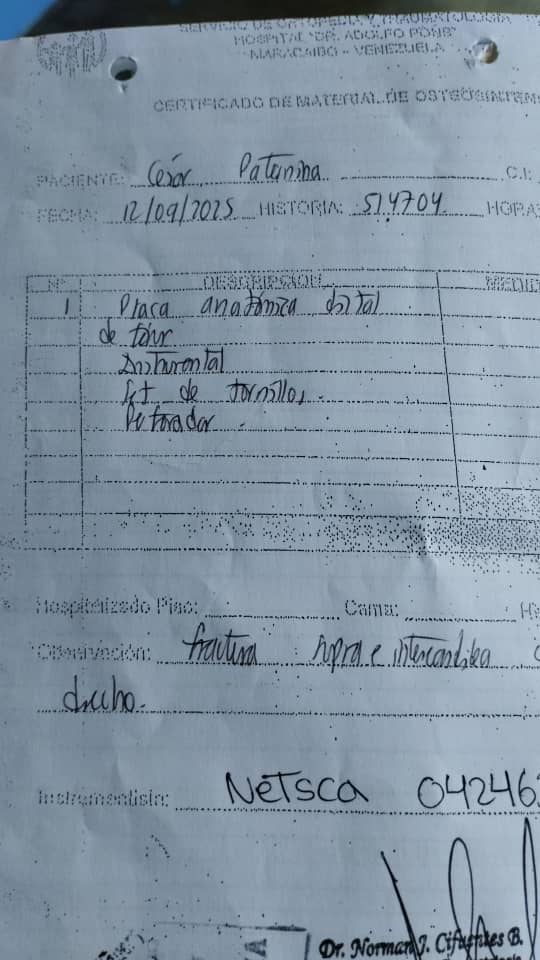 SERVICIO DE ORTOPEDIA Y TRAUMATOLOGIA
HOSPITAL "DR. ADOLFO PONS"
MARACAIBO - VENEZUELA
CERTIFICADO DE MATERIAL DE OSTEOSINTEM
PACIENTE: César C.I:
FECHA: 12/09/2025 HISTORIA: 514704 HORA:
Nº DESCRIPCION MEDID
1 Placa anatómica distal
de
Set de tornillos.
Perforador
Hospitalizado Piso: Cama: H
Observación: fractura supra e
Instrumentista: NETSCA 04246
Dr. Norman J. Cifuentes B.